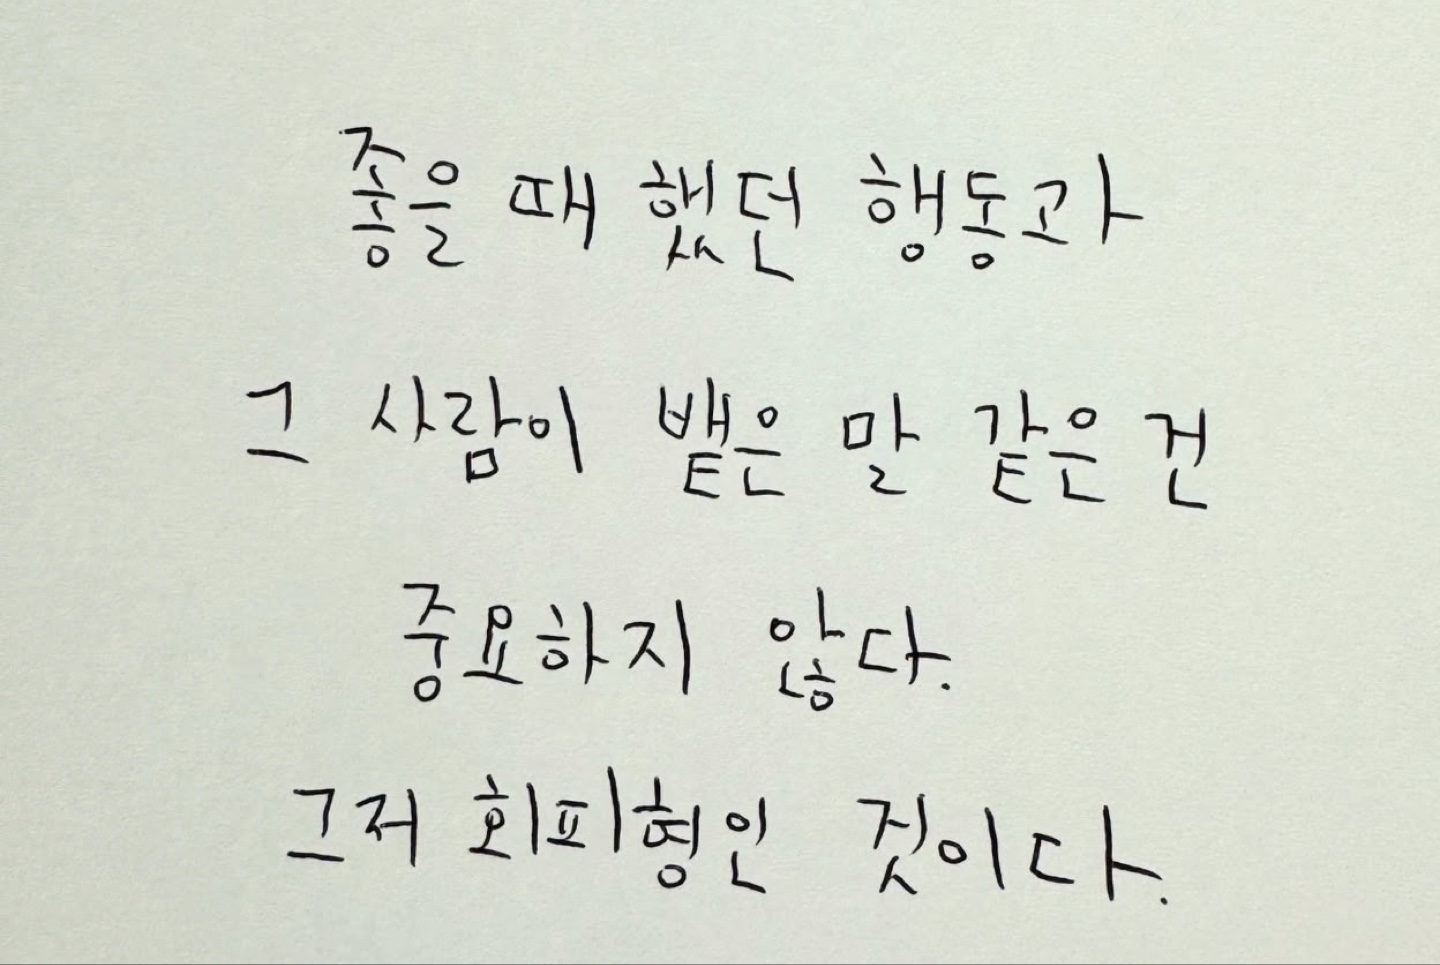 좋을 때 했던 행동과
그 사람이 뱉은 말 같은 건
중요하지 않다.
그저 회피형인 것이다.